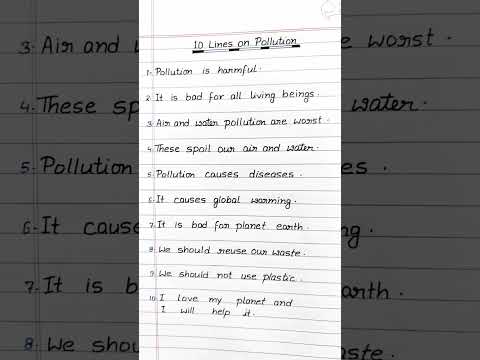 10 Lines on Pollution
1. Pollution is harmful.
2. It is bad for all living beings.
3. Air and water pollution are worst.
4. These spoil our air and water.
5. Pollution causes diseases.
6. It causes global warming.
7. It is bad for planet earth.
8. We should reuse our waste.
9. We should not use plastic.
10. I love my planet and
I will help it.
3. Air and
e worst.
4. These spo
water.
5. Pollution
es.
6. It cause
ng.
7. It is b
arth.
8. We shou
aste.